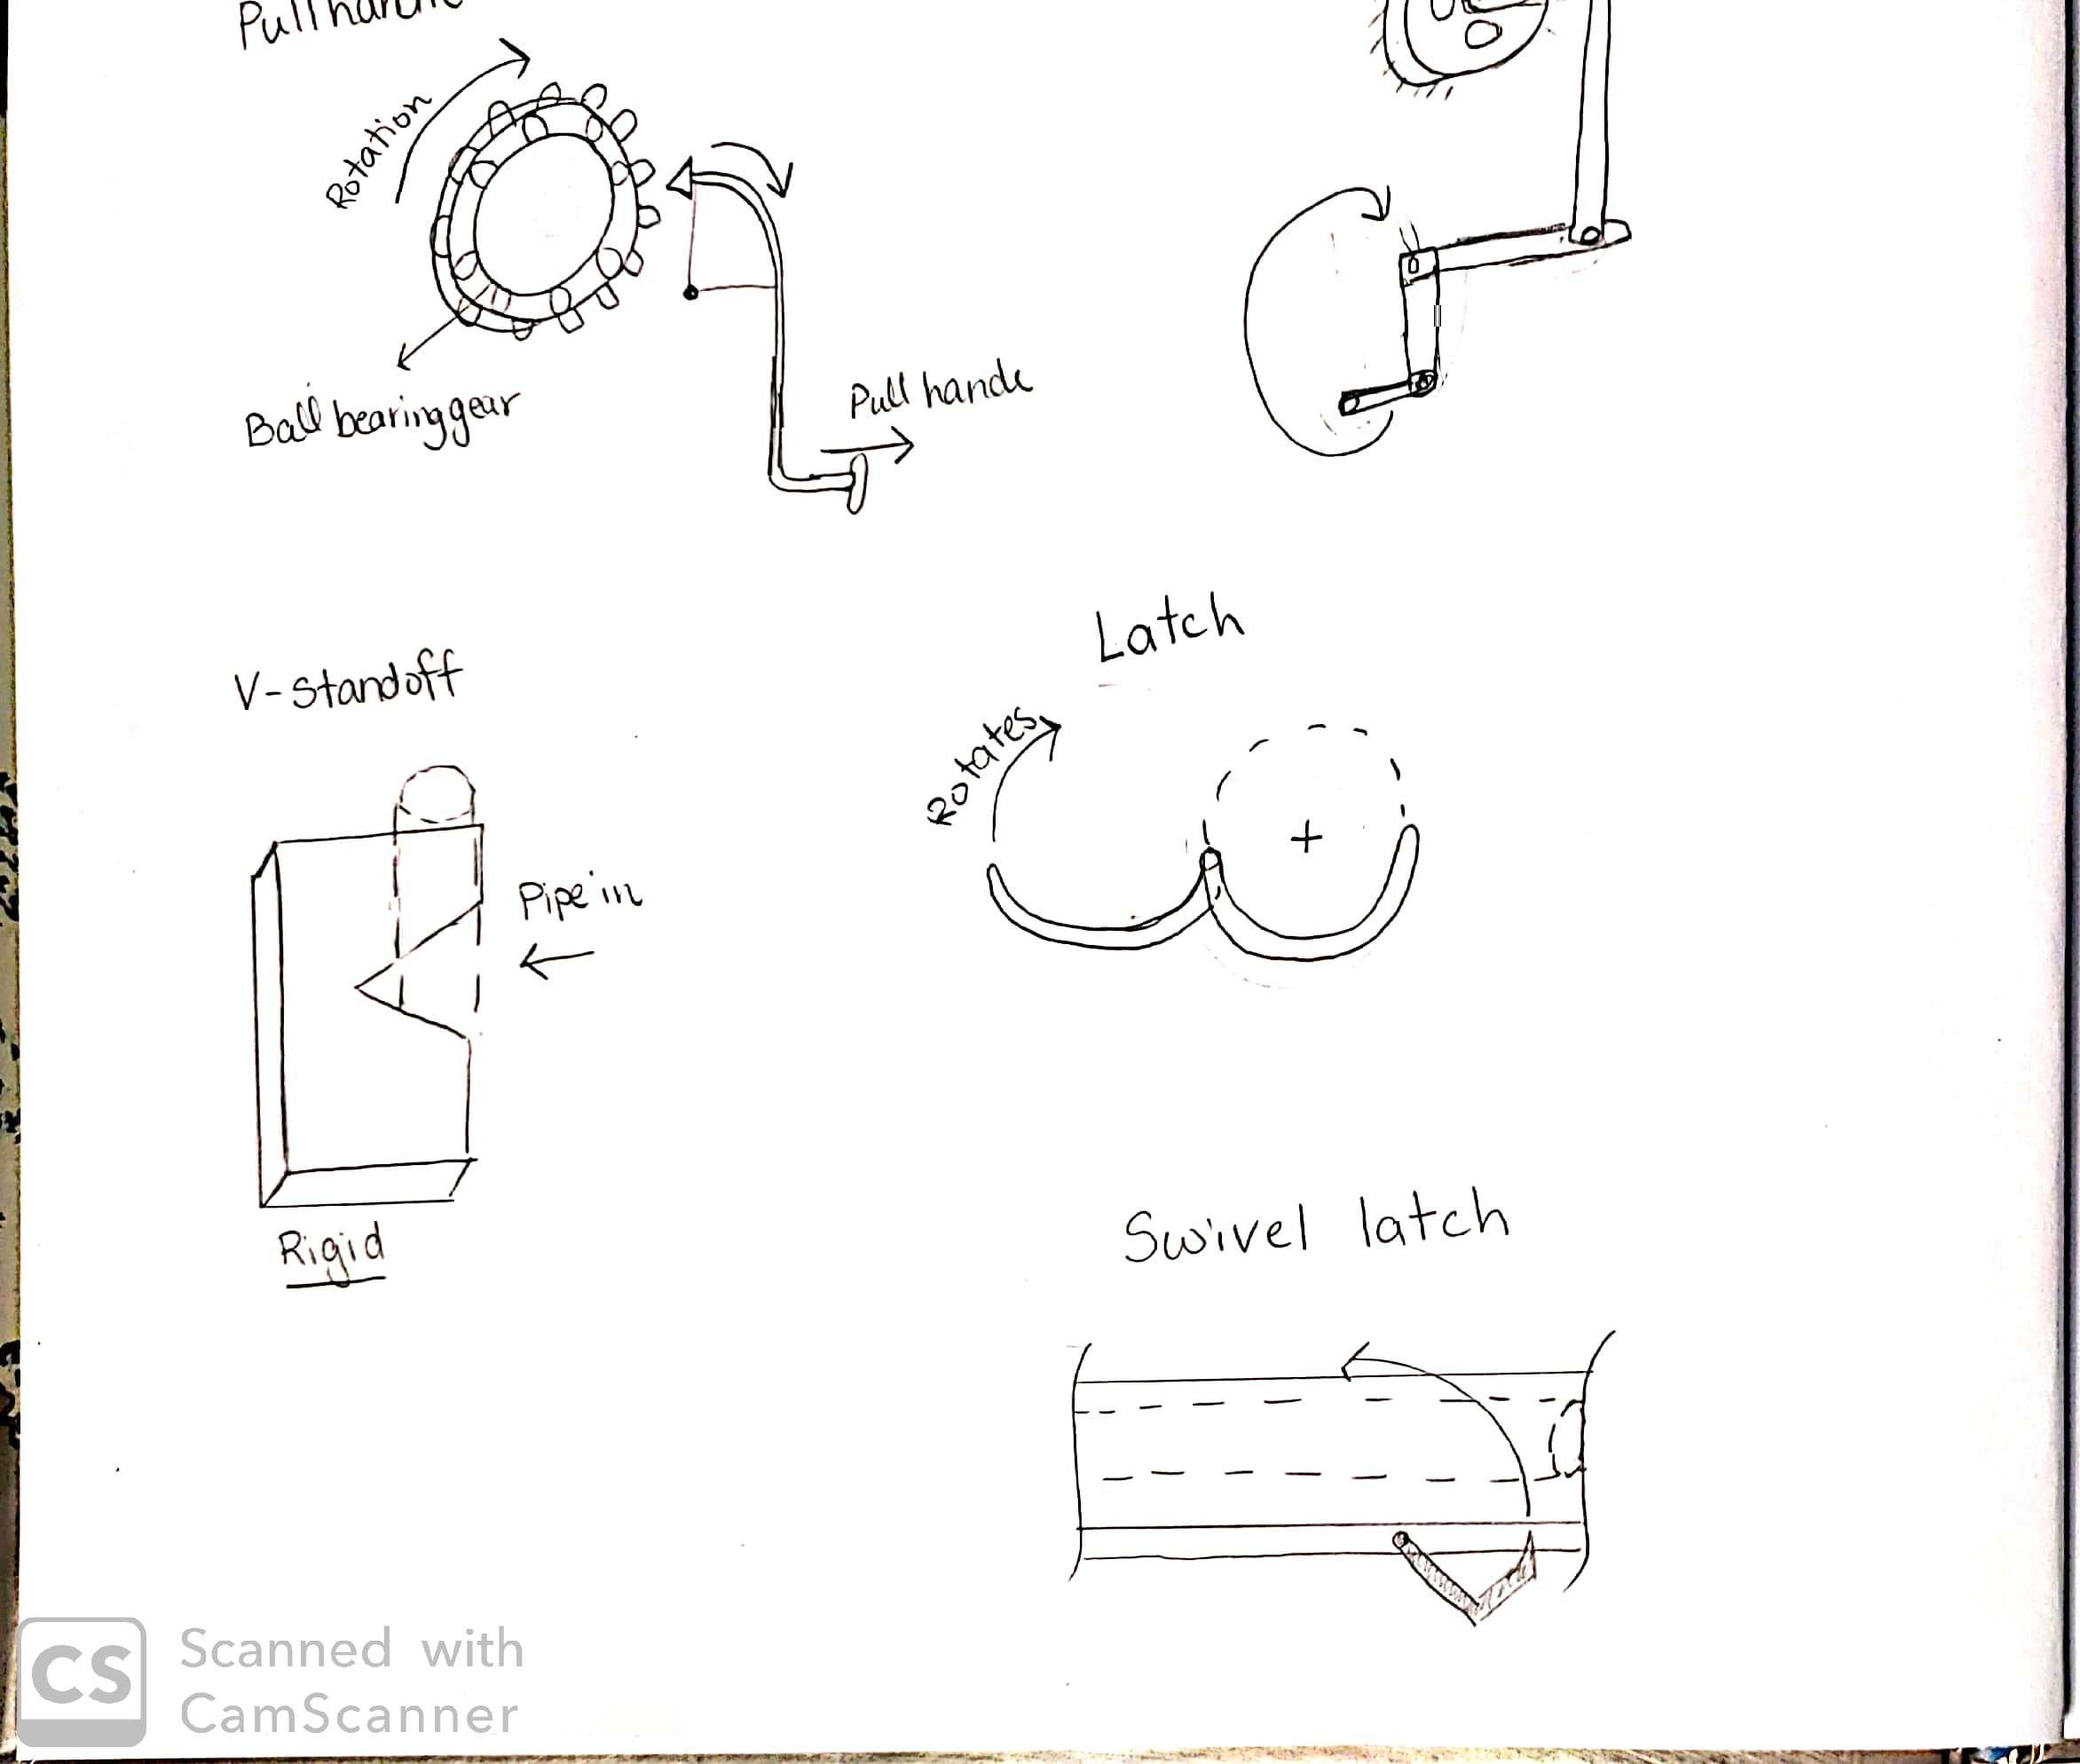 Rotation
Ball bearing gear
Pull hande
V-Standoff
Pipe in
Rigid
Latch
Rotates
Swivel latch
CS
Scanned with
CamScanner